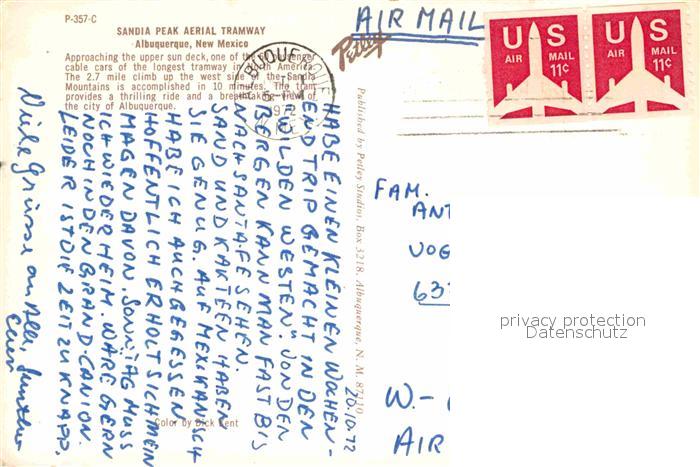 P-357-C
SANDIA PEAK AERIAL TRAMWAY
Albuquerque, New Mexico
Approaching the upper sun deck, one of the 60 passenger
cable cars of the longest tramway in North America.
The 2.7 mile climb up the west side of the Sandia
Mountains is accomplished in 10 minutes. The tram
provides a thrilling ride and a breathtaking view of
the city of Albuquerque.
AIR MAIL
Petley
US US
AIR MAIL AIR MAIL
11¢ 11¢
1972
20.10.72
HABE EINEN KLEINEN WOCHEN-
END TRIP GEMACHT IN DEN
"WILDEN WESTEN". VON DEN
BERGEN KANN MAN FAST BIS
NACH SANTA-FE SEHEN.
SAND UND KAKTEEN HABEN
SIE GENUG. AUF MEXIKANISCH
HABE ICH AUCH GEGESSEN
HOFFENTLICH ERHOLT SICH MEIN
MAGEN DAVON. SONNTAG MUSS
ICH WIEDER HEIM. WÄRE GERN
NOCH IN DEN GRAND-CANION.
LEIDER IST DIE ZEIT ZU KNAPP.
Viele Grüsse an alle,
Euer
Color by Dick Kent
Published by Petley Studios, Box 3218, Albuquerque, N. M. 87110
FAM.
ANT
VOG
63
W.-
AIR
privacy protection
Datenschutz